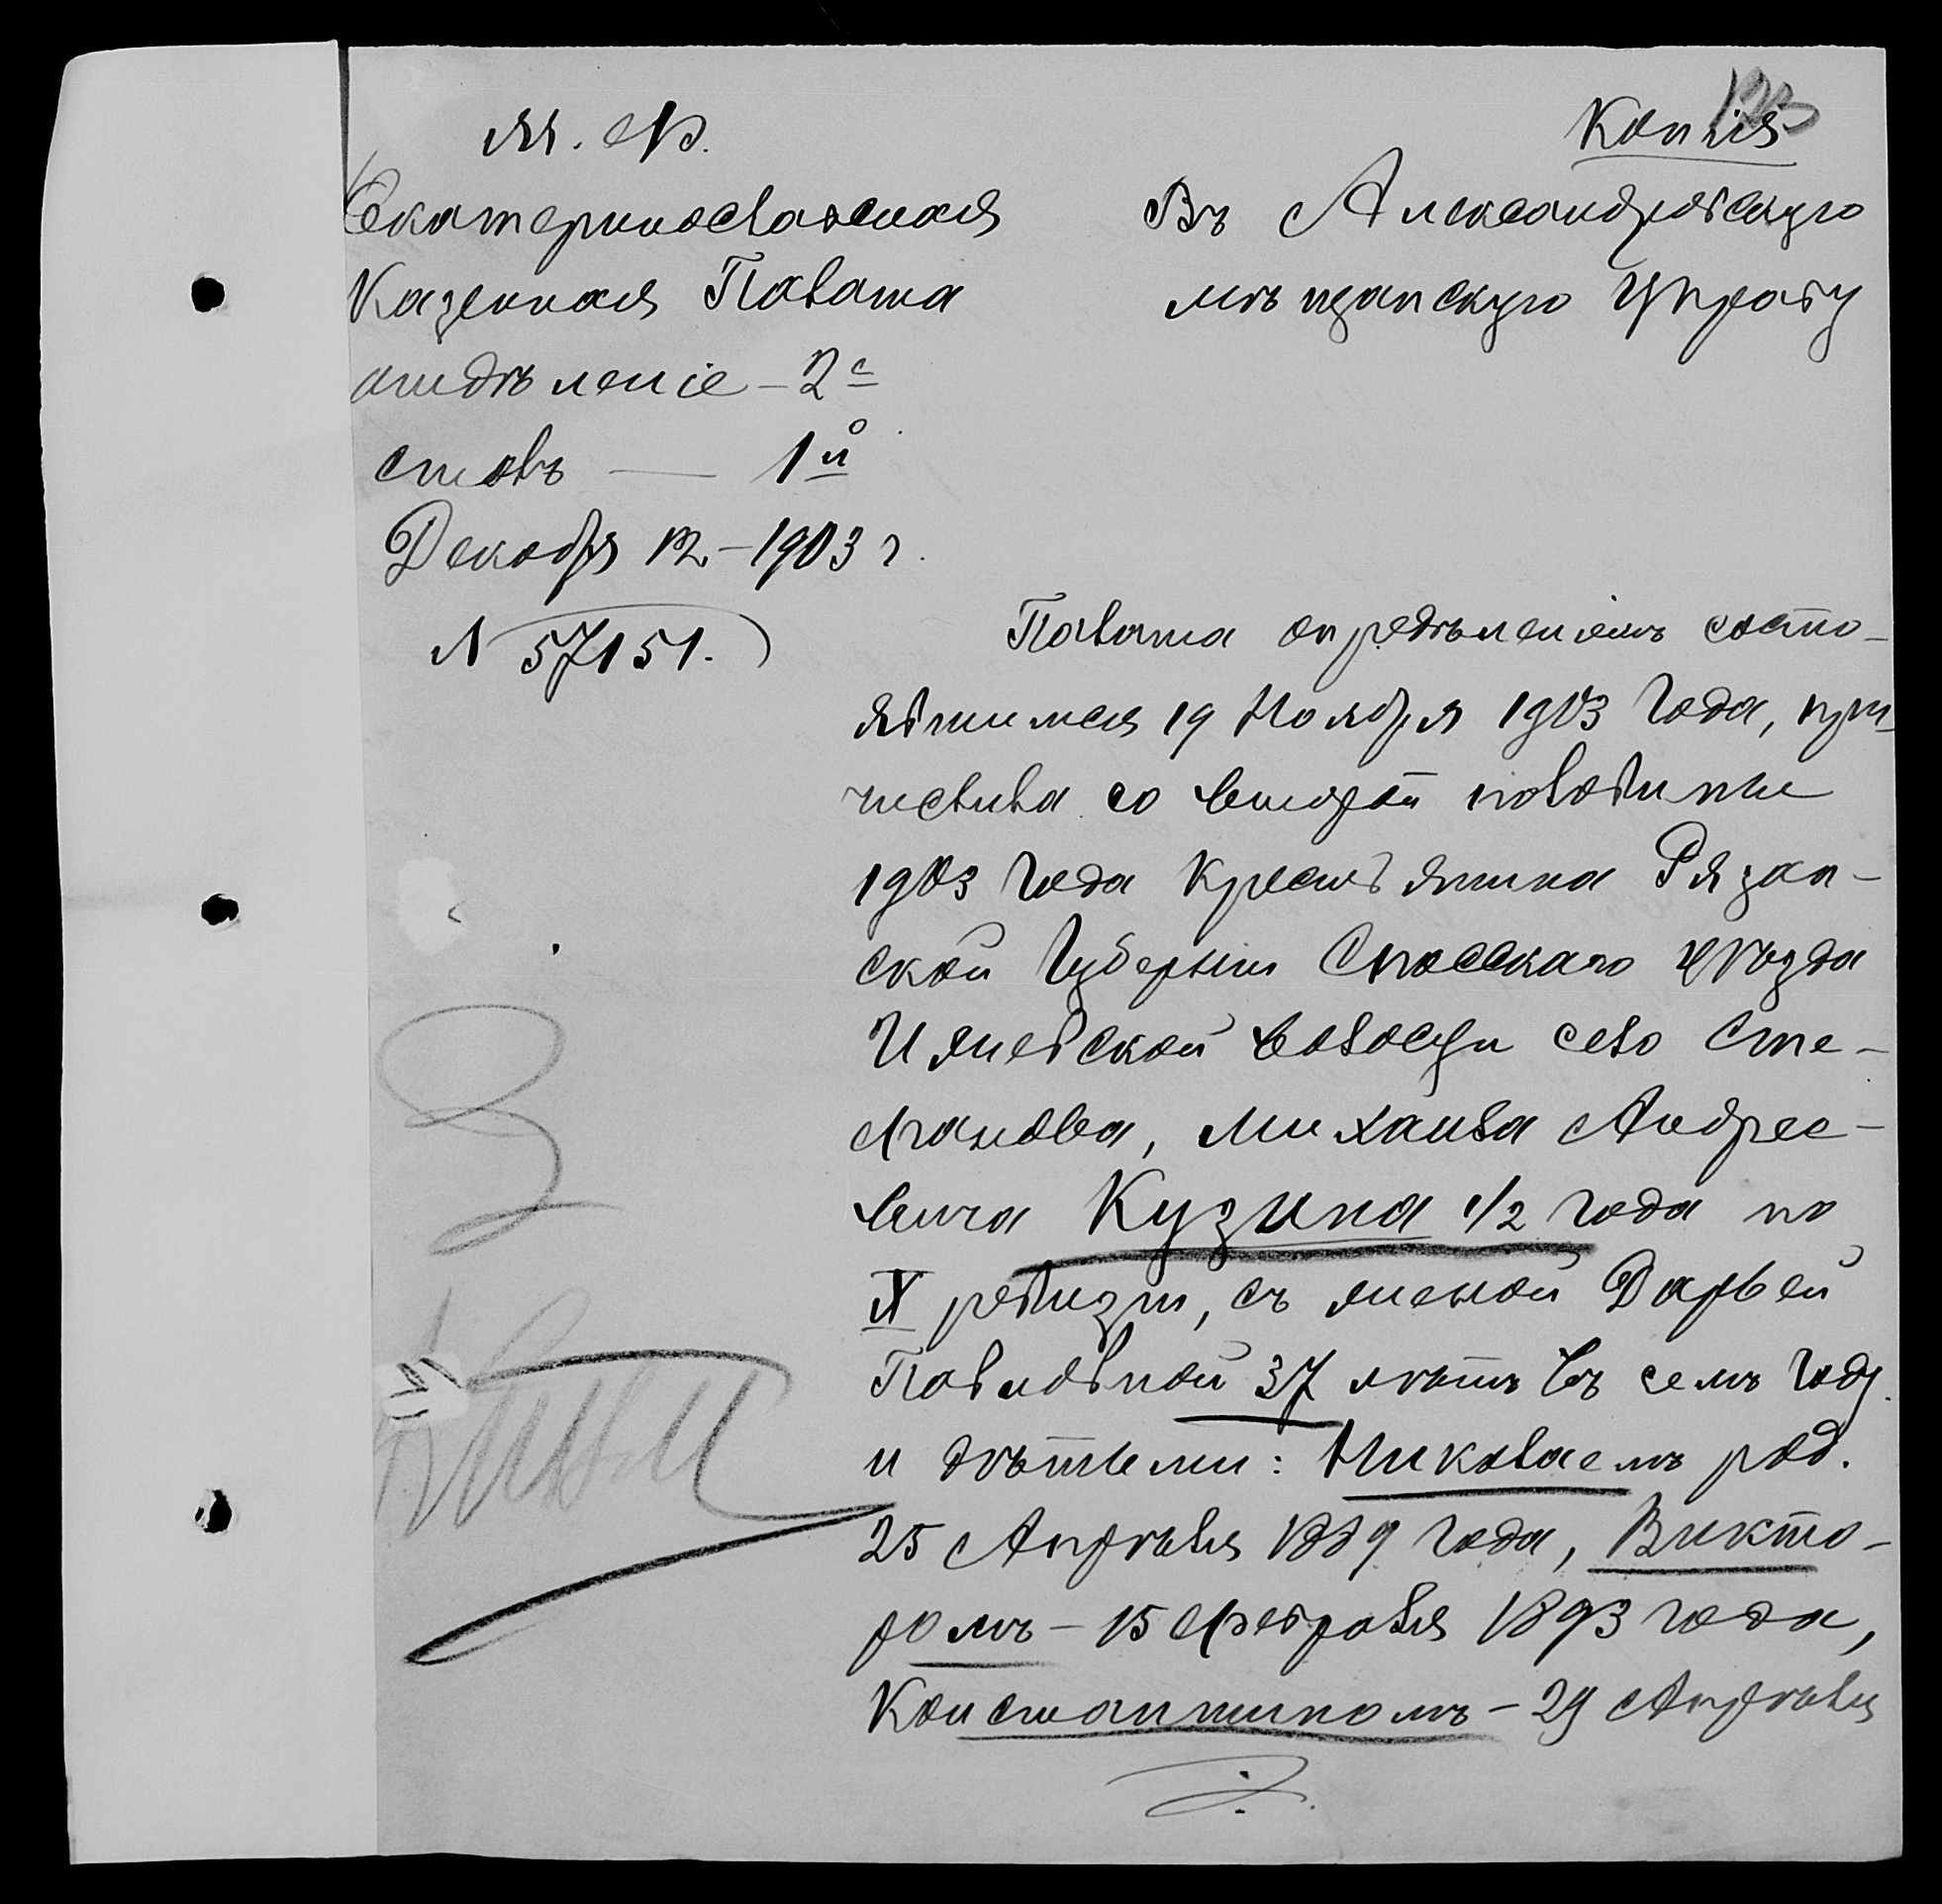 М. Ф.
Екатеринославская
Казенная Палата
отдѣленіе - 2е
столъ — 1й
Декабря 12 - 1903 г.
№ 57151.
Копія
Въ Александровскую
мѣщанскую Управу
Палата опредѣленіемъ состо-
явшимся 19 Ноября 1903 года, при-
числила со второй половины
1903 года крестьянина Рязан-
ской Губерніи Спасскаго уѣзда
Ижевской волости села Сте-
фанова, Михаила Андрее-
вича Кузина 1/2 года по
X ревизіи, съ женой Дарьей
Павловной 37 лѣтъ въ семъ году
и дѣтьми: Николаемъ род.
25 Апрѣля 1889 года, Викто-
ромъ - 15 Февраля 1893 года,
Константиномъ - 29 Апрѣля